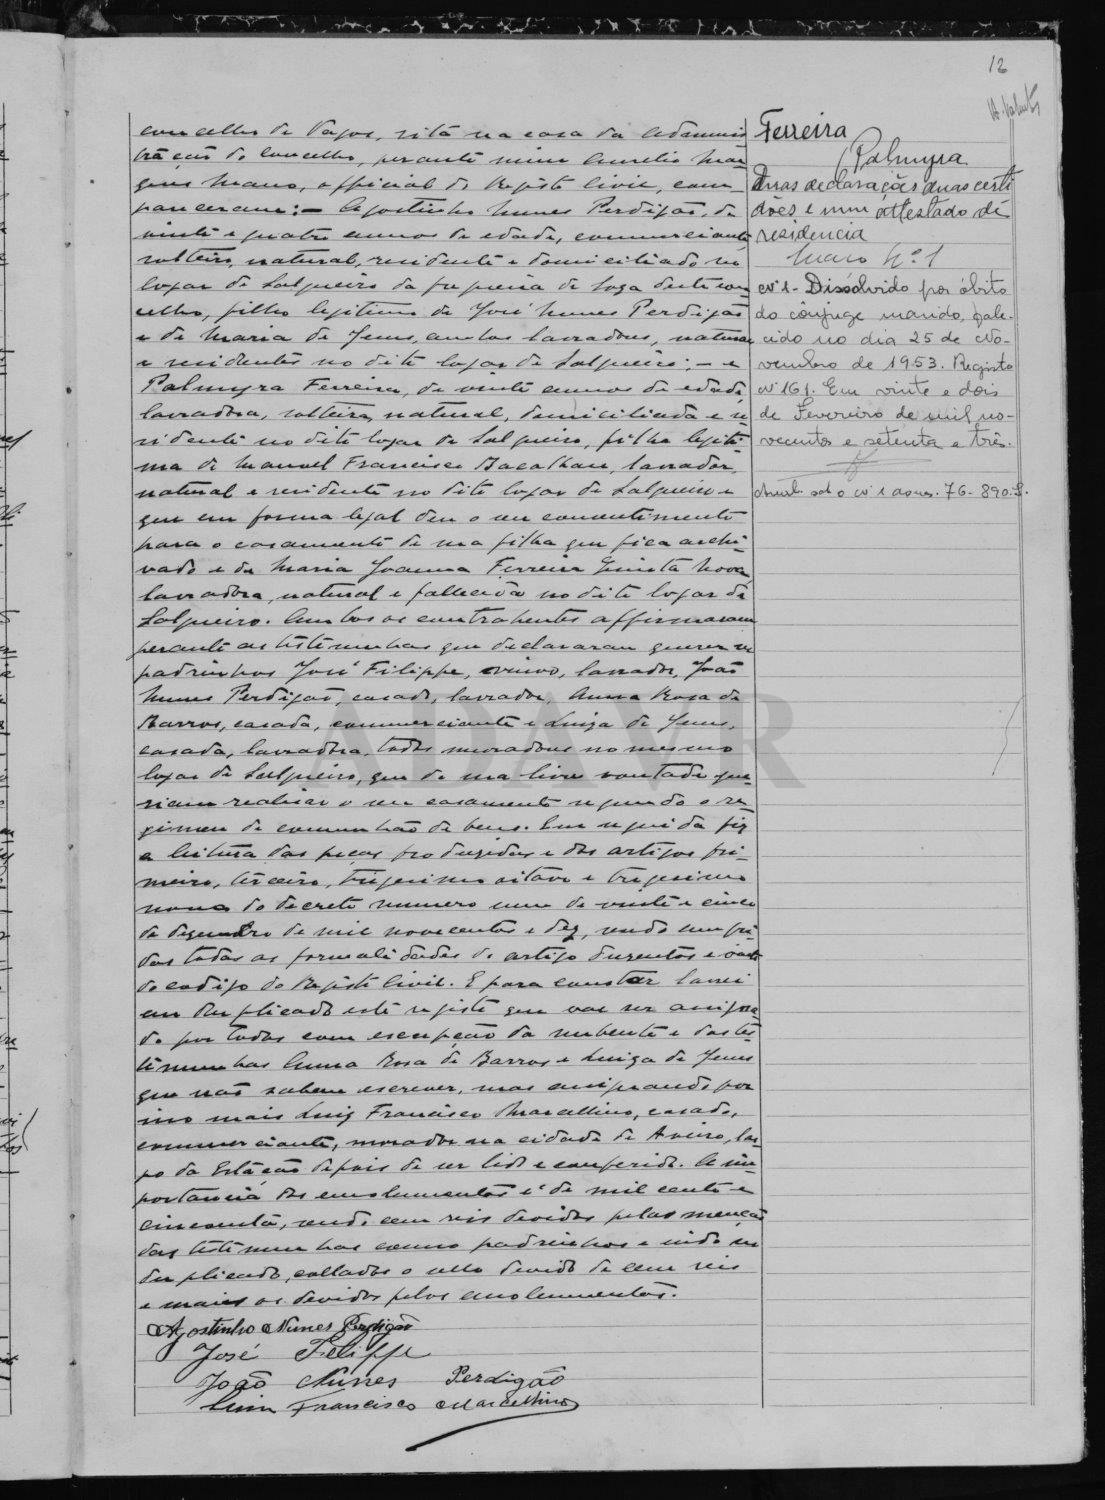 12
concelho de Vagos, sita na casa da Adminis
tração do concelho, perante mim Aurelio Mar
ques Mano, official do Registo Civil, com-
pareceram: — Agostinho Nunes Perdigão, de
vinte e quatro annos de edade, commerciante
solteiro, natural, residente e domiciliado no
logar de Salgueiro da freguesia de Soza deste con
celho, filho legitimo de José Nunes Perdigão
e de Maria de Jesus, ambos lavradores, naturaes
e residentes no dito logar de Salgueiro; — e
Palmyra Ferreira, de vinte annos de edade
lavradora, solteira, natural, domiciliada e re
sidente no dito logar de Salgueiro, filha legiti-
ma de Manuel Francisco Bacalhau, lavrador,
natural e residente no dito logar de Salgueiro e
que em forma legal deu o seu consentimento
para o casamento de sua filha que fica archi-
vado e de Maria Joanna Ferreira Nova
lavradora, natural e fallecida no dito logar de
Salgueiro. Ambos os contrahentes affirmaram
perante as testemunhas que declararam querer se
padrinhos José Filippe, viuvo, lavrador, João
Nunes Perdigão, casado, lavrador, Anna Rosa de
Barros, casada, commerciante e Luiza de Jesus,
casada, lavradora, todos moradores no mesmo
logar de Salgueiro, que de sua livre vontade que-
riam realisar o seu casamento segundo o re-
gimen de communhão de bens. Em seguida fiz
a leitura das peças produzidas e dos artigos pri-
meiro, terceiro, trigesimo oitavo e trigesimo
nono do decreto numero um de vinte e cinco
de dezembro de mil novecentos e dez, sendo cumpri
das todas as formalidades do artigo duzentos e vinte
do codigo do Registo Civil. E para constar lavrei
em duplicado este registo que vae ser assigna-
do por todos com excepção da nubente e das tes-
temunhas Anna Rosa de Barros e Luiza de Jesus
que não sabem escrever, mas assignando por
isso mais Luiz Francisco Marcellino, casado,
commerciante, morador na cidade de Aveiro, lar-
go da Estação depois de ser lido e conferido. A im-
portancia dos emolumentos é de mil cento e
cincoenta, sendo cem reis devidos pelas menção
das testemunhas como padrinhos e indo em
duplicado, collados o sello devido de cem reis
e mais os devidos pelos emolumentos.
Agostinho Nunes Perdigão
José Felippe
João Nunes Perdigão
Luiz Francisco Marcellino
Ferreira
Palmyra
Duas declarações duas certi
dões e um attestado de
residencia
Maço Nº 1
Nº 1 - Dissolvido por óbito
do cônjuge marido, fale-
cido no dia 25 de No-
vembro de 1953. Registo
Nº 161. Em vinte e dois
de Fevereiro de mil no-
vecentos e setenta e três.
sob o nº 1 76-890-
ADAVR